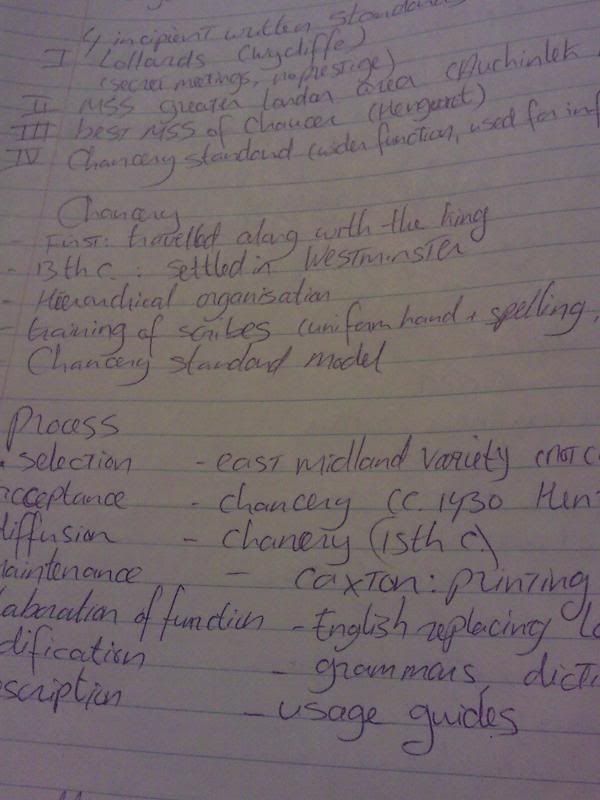 4 incipient written standards
I Lollards (Wycliffe)
(secret meetings, no prestige)
II MSS greater London area (Auchinlek
III best MSS of Chaucer (Hengwrt)
IV Chancery standard (wider function, used for inf
Chancery
- First: travelled along with the king
- 13th c.: settled in Westminster
- Hierarchical organisation
- training of scribes (uniform hand + spelling,
- Chancery standard model
Process
. selection - east midland variety (not
acceptance - chancery (c. 1430 Hen
diffusion - chanery (15th c.)
aintenance - Caxton: printing
laboration of function - English replacing
dification - grammars, dicti
escription - usage guides